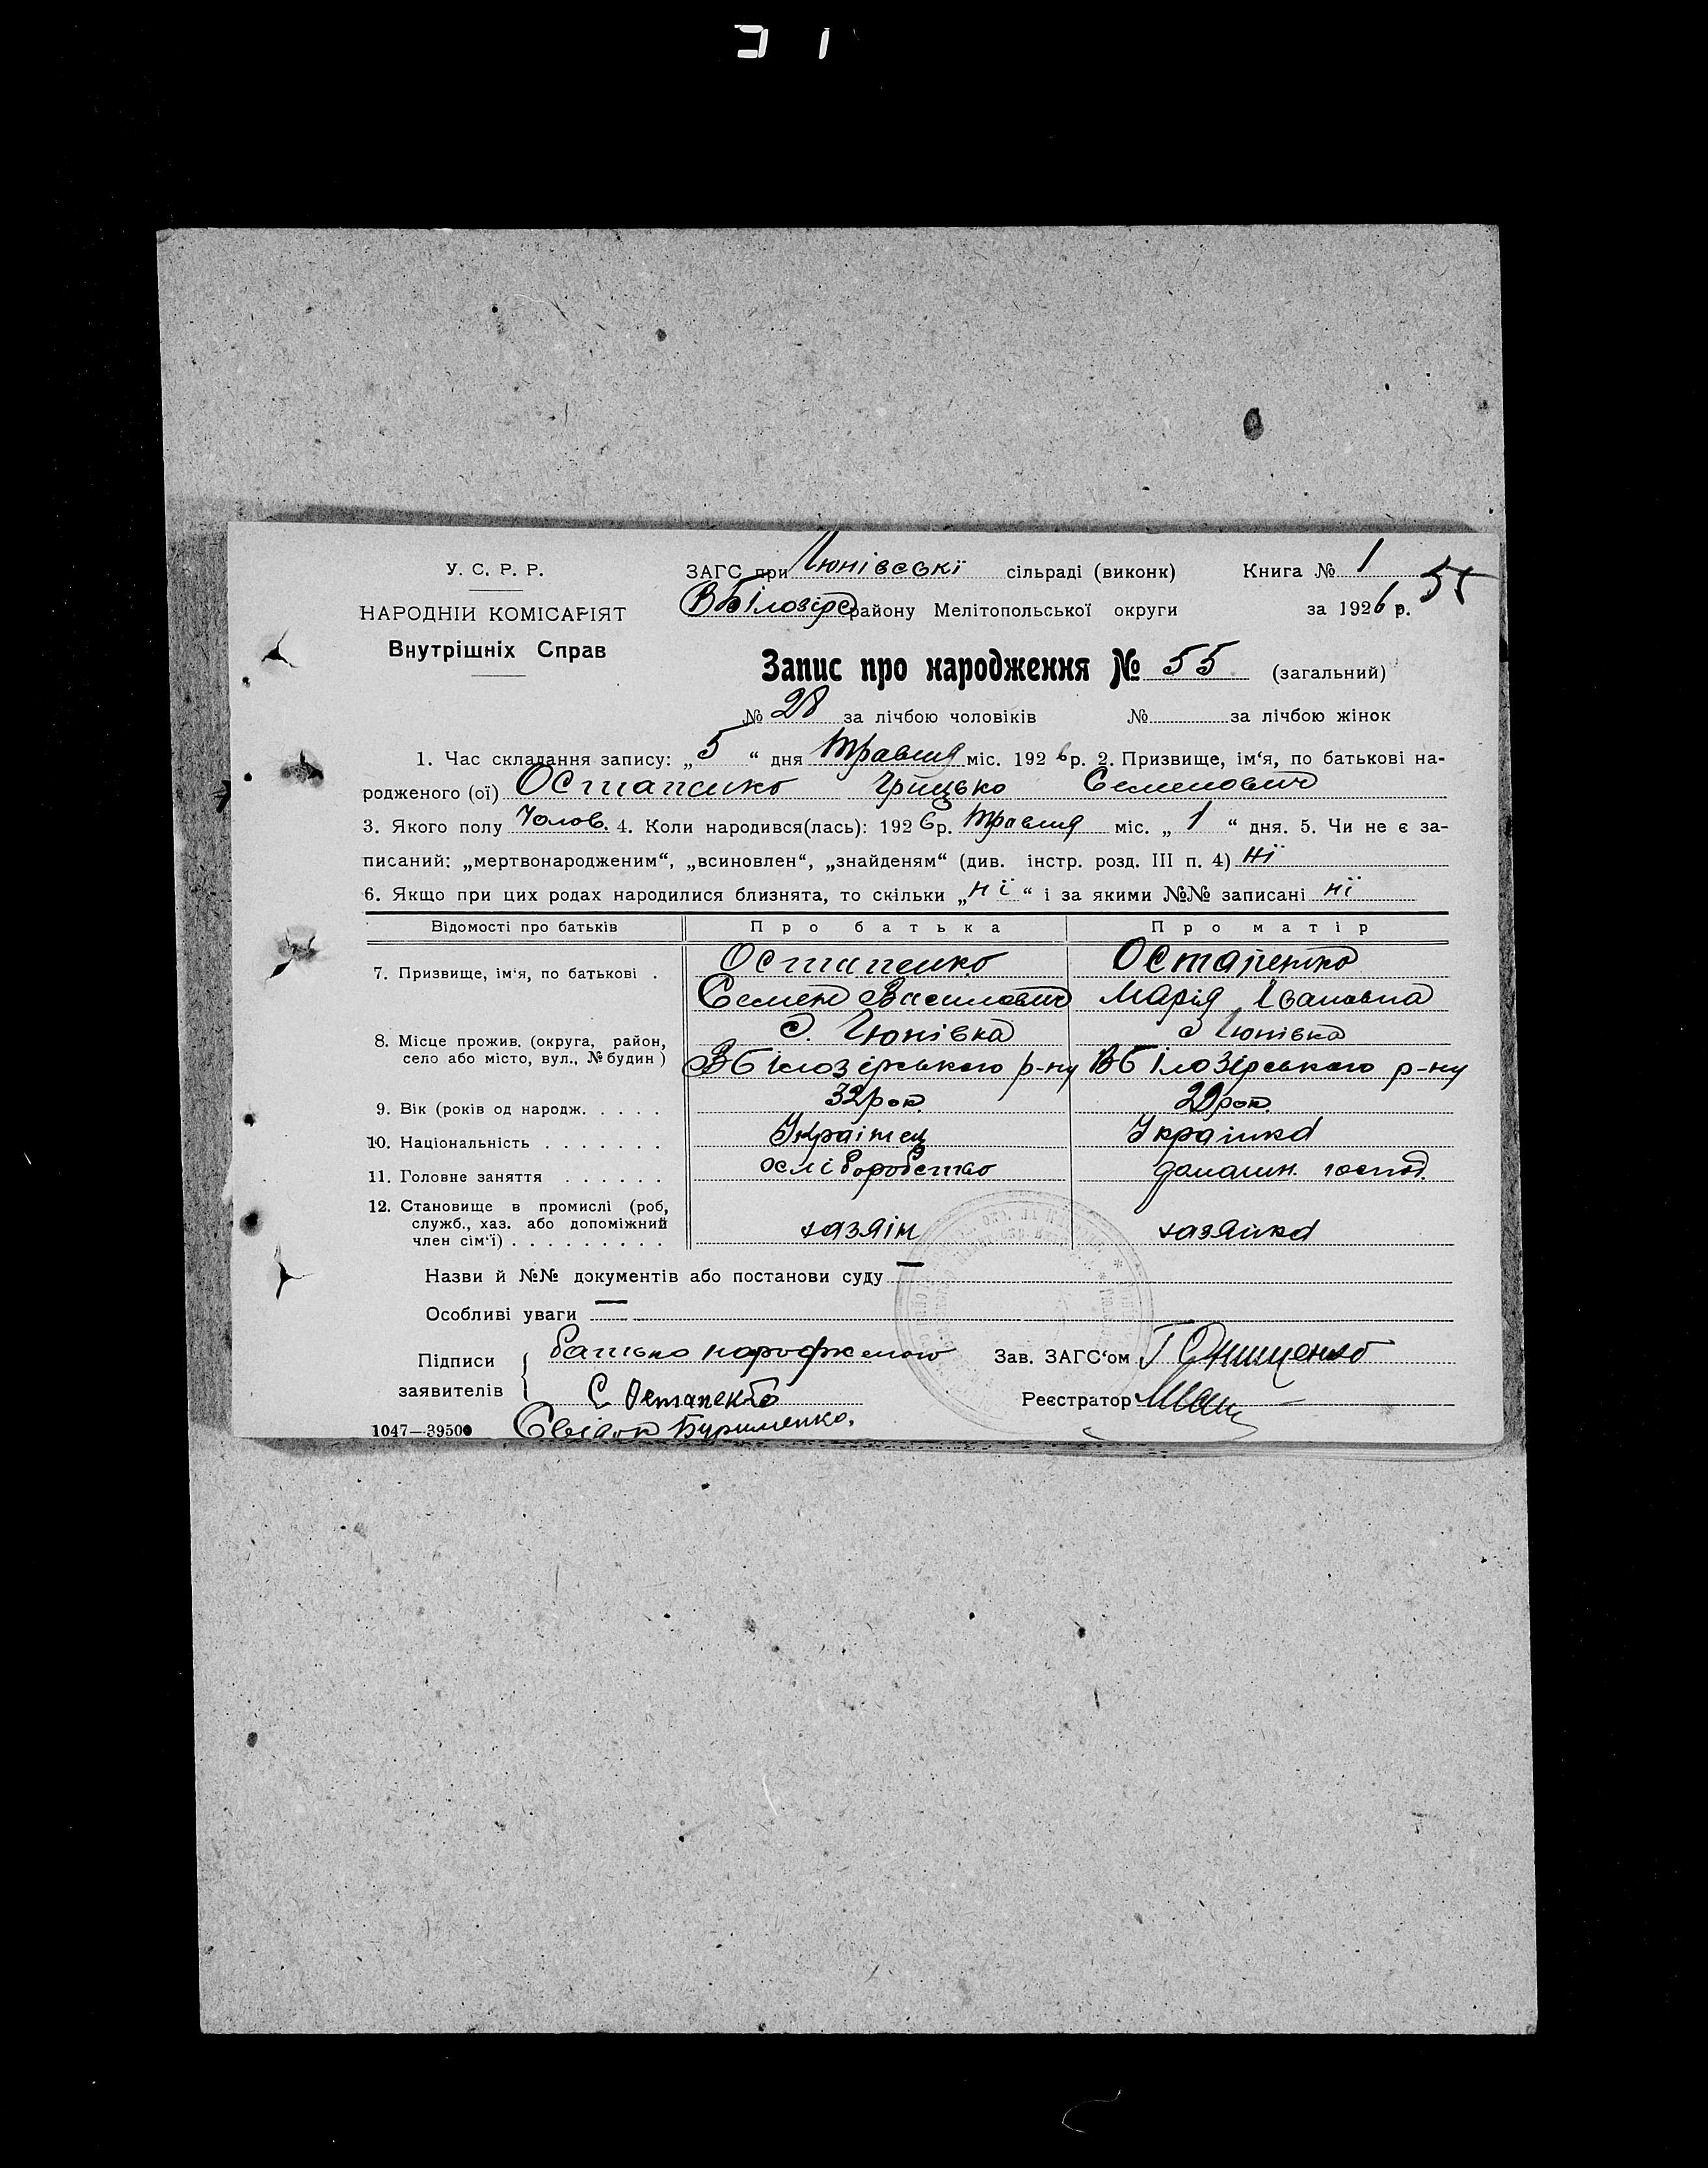 У. С. Р. Р.
НАРОДНІЙ КОМІСАРІЯТ
Внутрішніх Справ
ЗАГС при Гюнівські сільраді (виконк) Книга № 1
55
В Білозірс району Мелітопольської округи за 1926 р.
Запис про народження № 55 (загальний)
№ 28 за лічбою чоловіків № за лічбою жінок
1. Час складання запису: „5“ дня травня міс. 1926 р. 2. Призвище, ім‘я, по батькові на-
родженого (ої) Остапенко Грицько Семенович
3. Якого полу Чолов. 4. Коли народився(лась): 1926 р. травня міс. „1“ дня. 5. Чи не є за-
писаний: „мертвонародженим“, „всиновлен“, „знайденям“ (див. інстр. розд. III п. 4) ні
6. Якщо при цих родах народилися близнята, то скільки „ні“ і за якими №№ записані ні
Відомості про батьків Про батька Про матір
7. Призвище, ім‘я, по батькові . Остапенко Остапенко
Семен Василович Марія Івановна
8. Місце прожив. (округа, район, село або місто, вул., № будин) с. Гюнівка с Гюнівка
В Білозірського р-ну В Білозірського р-ну
9. Вік (років од народж. . . . . 32 рок. 29 рок.
10. Національність . . . . . . . Українец Українка
11. Головне заняття . . . . . . хліборобство домашн. господ.
12. Становище в промислі (роб, служб., хаз. або допоміжний член сім‘ї) . . . . . . . . . хазяін хазяйка
Назви й №№ документів або постанови суду —
Особливі уваги —
Підписи заявителів батько народженого Зав. ЗАГС‘ом Г Онищенко
С Остапенко Реєстратор
1047—39500 Свідок Буряменко.